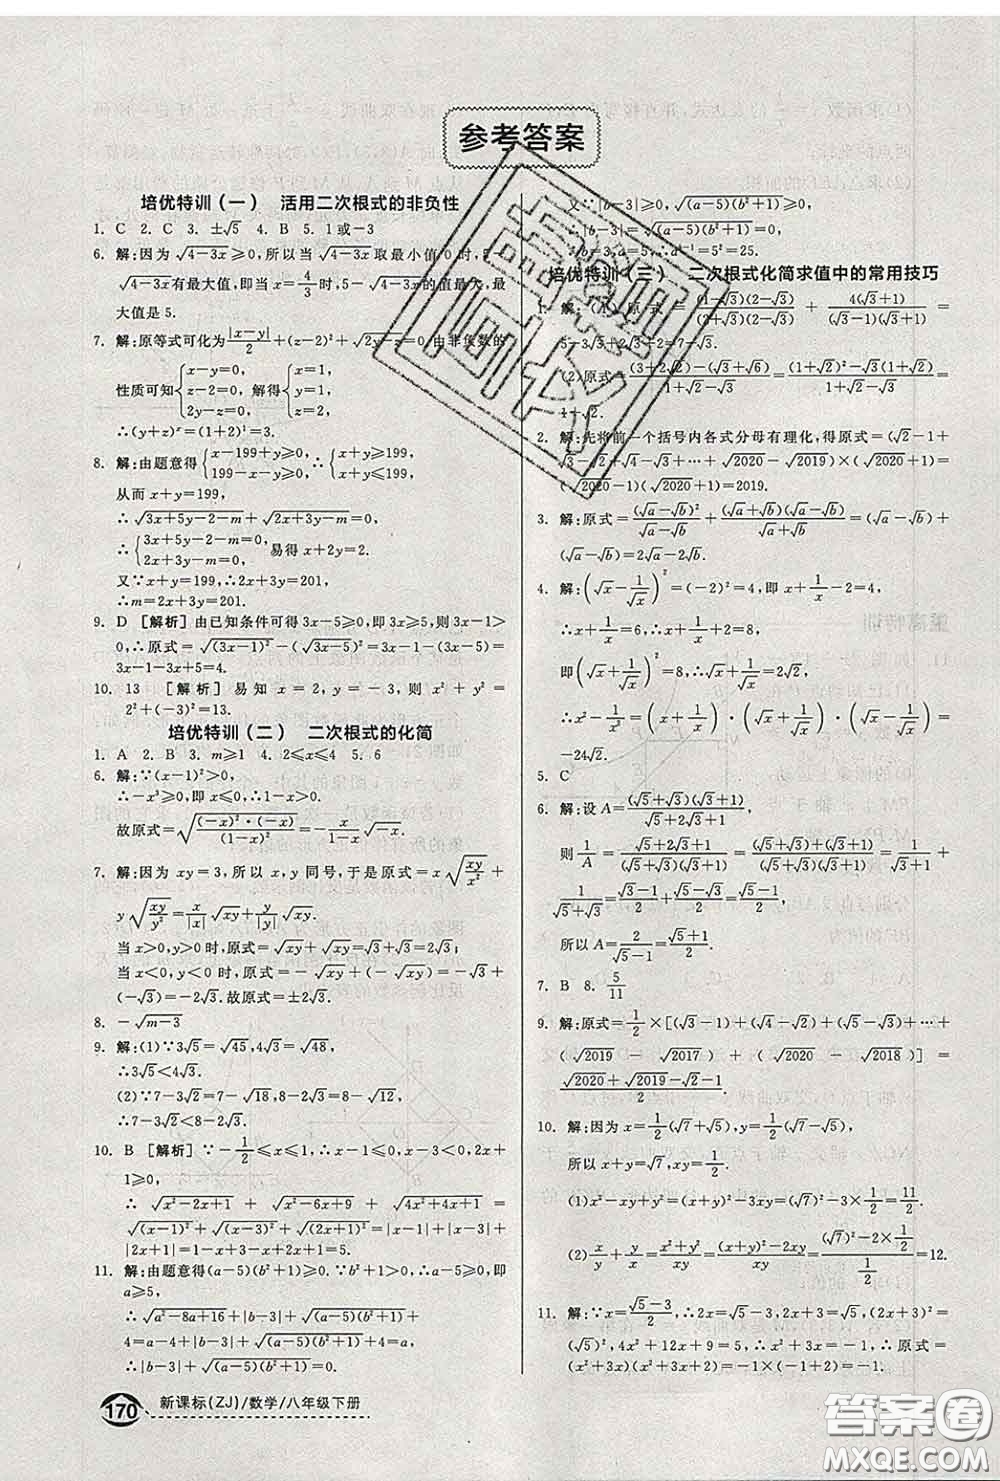 参考答案
培优特训（一） 活用二次根式的非负性
1. C 2. C 3. ±√5 4. B 5. 1或-3
6. 解:因为√(4-3x)≥0,所以当√(4-3x)取最小值0时,5-
√(4-3x)有最大值,即当x=4/3时,5-√(4-3x)的值最大,最
大值是5.
7. 解:原等式可化为|x-y|/2+(z-2)²+√(2y+z)=0,由非负数的
性质可知{x-y=0, z-2=0, 2y+z=0, 解得{x=1, y=1, z=2,
∴(y+z)ˣ=(1+2)¹=3.
8. 解:由题意得{x-199+y≥0, 199-x-y≥0, ∴{x+y≥199, x+y≤199,
从而x+y=199,
∴√(3x+5y-2-m)+√(2x+3y-m)=0,
∴{3x+5y-2-m=0, 2x+3y-m=0, 易得x+2y=2.
又∵x+y=199,∴2x+3y=201,
∴m=2x+3y=201.
9. D [解析]由已知条件可得3x-5≥0,则3x-1>0,
∴原式=√((3x-1)²)-√((3x-5)²)=|3x-1|-|3x-5|=
3x-1-3x+5=4.
10. 13 [解析]易知x=2,y=-3,则x²+y²=
2²+(-3)²=13.
培优特训（二） 二次根式的化简
1. A 2. B 3. m≥1 4. 2≤x≤4 5. 6
6. 解:∵(x-1)²>0,
∴-x³≥0,即x≤0,∴1-x>0.
故原式=√((-x)²·(-x)/(1-x)²)=-x/(1-x)√(-x).
7. 解:因为xy=3,所以x,y同号,于是原式=x√(xy/x²)+
y√(xy/y²)=x/|x|√(xy)+y/|y|√(xy).
当x>0,y>0时,原式=√(xy)+√(xy)=√3+√3=2√3;
当x<0,y<0时,原式=-√(xy)+(-√(xy))=-√3+
(-√3)=-2√3.故原式=±2√3.
8. -√(m-3)
9. 解:(1)∵3√5=√45,4√3=√48,
∴3√5<4√3.
(2)∵7-3√2=7-√18,8-2√3=8-√12,
∴7-3√2<8-2√3.
10. B [解析]∵-1/2≤x≤1,∴x-1≤0,x-3<0,2x+
1≥0,
∴√(x²-2x+1)+√(x²-6x+9)+√(4x²+4x+1)=
√((x-1)²)+√((x-3)²)+√((2x+1)²)=|x-1|+|x-3|+
|2x+1|=1-x+3-x+2x+1=5.
11. 解:由题意得(a-5)(b²+1)≥0.∵b²+1>0,∴a-5≥0,即
a≥5,
∴√(a²-8a+16)+|b-3|+√((a-5)(b²+1))=|a-4|+
4=a-4+|b-3|+√((a-5)(b²+1))+4=a,
∴|b-3|+√((a-5)(b²+1))=0.
又∵|b-3|≥0,√((a-5)(b²+1))≥0,
∴|b-3|=√((a-5)(b²+1))=0,
∴b=3,a=5,∴a²=5²=25.
培优特训（三） 二次根式化简求值中的常用技巧
1. 解:(1)原式=(1-√3)(2-√3)/(2+√3)(2-√3)+4(√3+1)/(√3-1)(√3+1)=
5-3√3+2√3+2=7-√3.
(2)原式=(3+2√2)-(√3+√6)/(1+√2-√3)=(1+√2)²-√3(1+√2)/(1+√2-√3)=
1+√2.
2. 解:先将前一个括号内各式分母有理化,得原式=(√2-1+
√3-√2+√4-√3+…+√2020-√2019)×(√2020+1)=
(√2020-1)(√2020+1)=2019.
3. 解:原式=(√a-√b)²/(√a-√b)+(√a+√b)(√a-√b)/(√a+√b)=(√a-√b)+
(√a-√b)=2√a-2√b.
4. 解:(√x-1/√x)²=(-2)²=4,即x+1/x-2=4,
∴x+1/x=6,∴x+1/x+2=8,
即(√x+1/√x)²=8,∴√x+1/√x=2√2,
∴x²-1/x²=(x+1/x)·(√x+1/√x)·(√x-1/√x)=
-24√2.
5. C
6. 解:设A=(√5+√3)(√3+1)/(√5+2√3+1),
则1/A=(√5+2√3+1)/(√5+√3)(√3+1)=(√5+√3)+(√3+1)/(√5+√3)(√3+1)=1/(√3+1)+
1/(√5+√3)=(√3-1)/2+(√5-√3)/2=(√5-1)/2.
所以A=2/(√5-1)=(√5+1)/2.
7. B 8. 5/11
9. 解:原式=1/2×[(√3-1)+(√4-√2)+(√5-√3)+…+
(√2019-√2017)+(√2020-√2018)]=
(√2020+√2019-√2-1)/2.
10. 解:因为x=1/2(√7+√5),y=1/2(√7-√5),
所以x+y=√7,xy=1/2.
(1)x²-xy+y²=(x+y)²-3xy=(√7)²-3×1/2=11/2.
(2)x/y+y/x=(x²+y²)/xy=((x+y)²-2xy)/xy=((√7)²-2×1/2)/(1/2)=12.
11. 解:∵x=(√5-3)/2,∴2x=√5-3,2x+3=√5,(2x+3)²=
(√5)²,4x²+12x+9=5,∴x²+3x=-1,∴原式=
(x²+3x)(x²+3x+2)=-1×(-1+2)=-1.
170 新课标(ZJ)/数学/八年级下册
答案圈
MXQE.COM